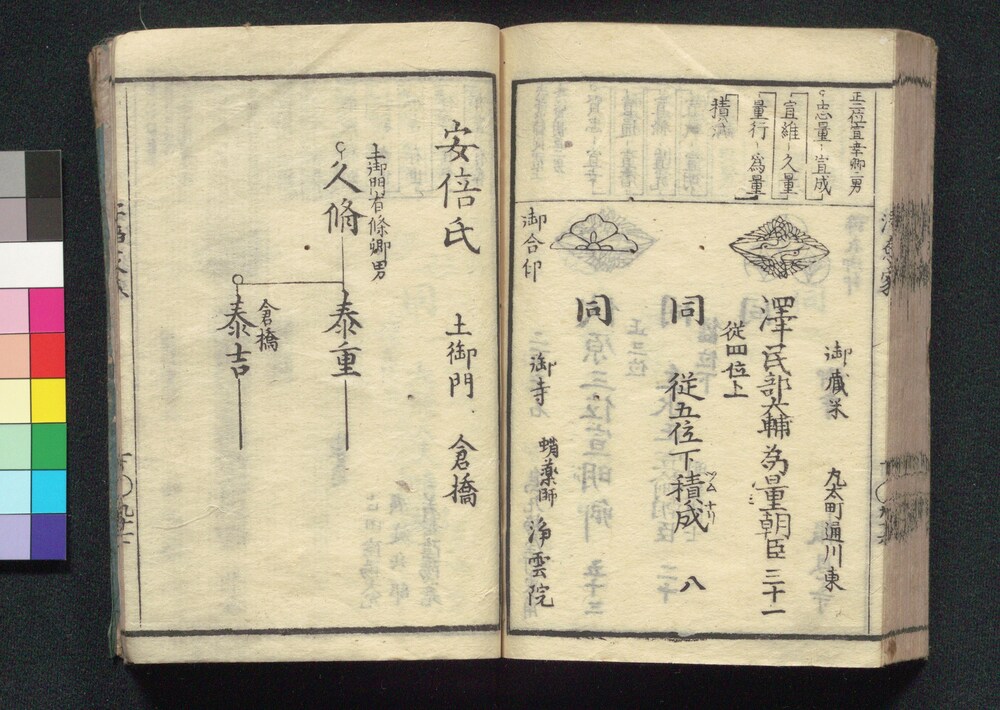 正三位宣幸卿二男
忠量 宣成
宣維 久量
量行 為量
積成
御蔵米 丸太町通川東
澤民部大輔為量朝臣 三十一
従四位上
同 従五位下積成 八
ツム ナリ
同 御寺 蛸薬師 浄雲院
御合印
安倍氏 土御門 倉橋
土御門有脩卿男
久脩
泰重
倉橋
泰吉